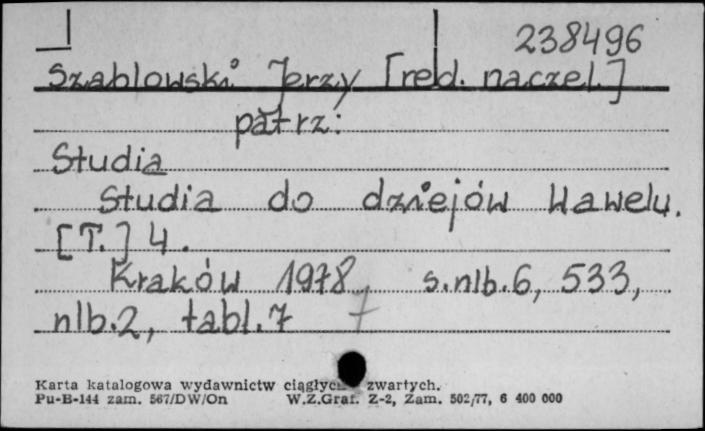 238496
Szablowski Jerzy [red. naczel.]
patrz:
Studia
Studia do dziejów Wawelu.
[T.] 4.
Kraków 1978, s.nlb.6, 533,
nlb.2, tabl.7
Karta katalogowa wydawnictw zwartych.
Pu-B-144 zam. 567/DW/On W.Z.Graf. Z-2, Zam. 502/77, 6 400 000